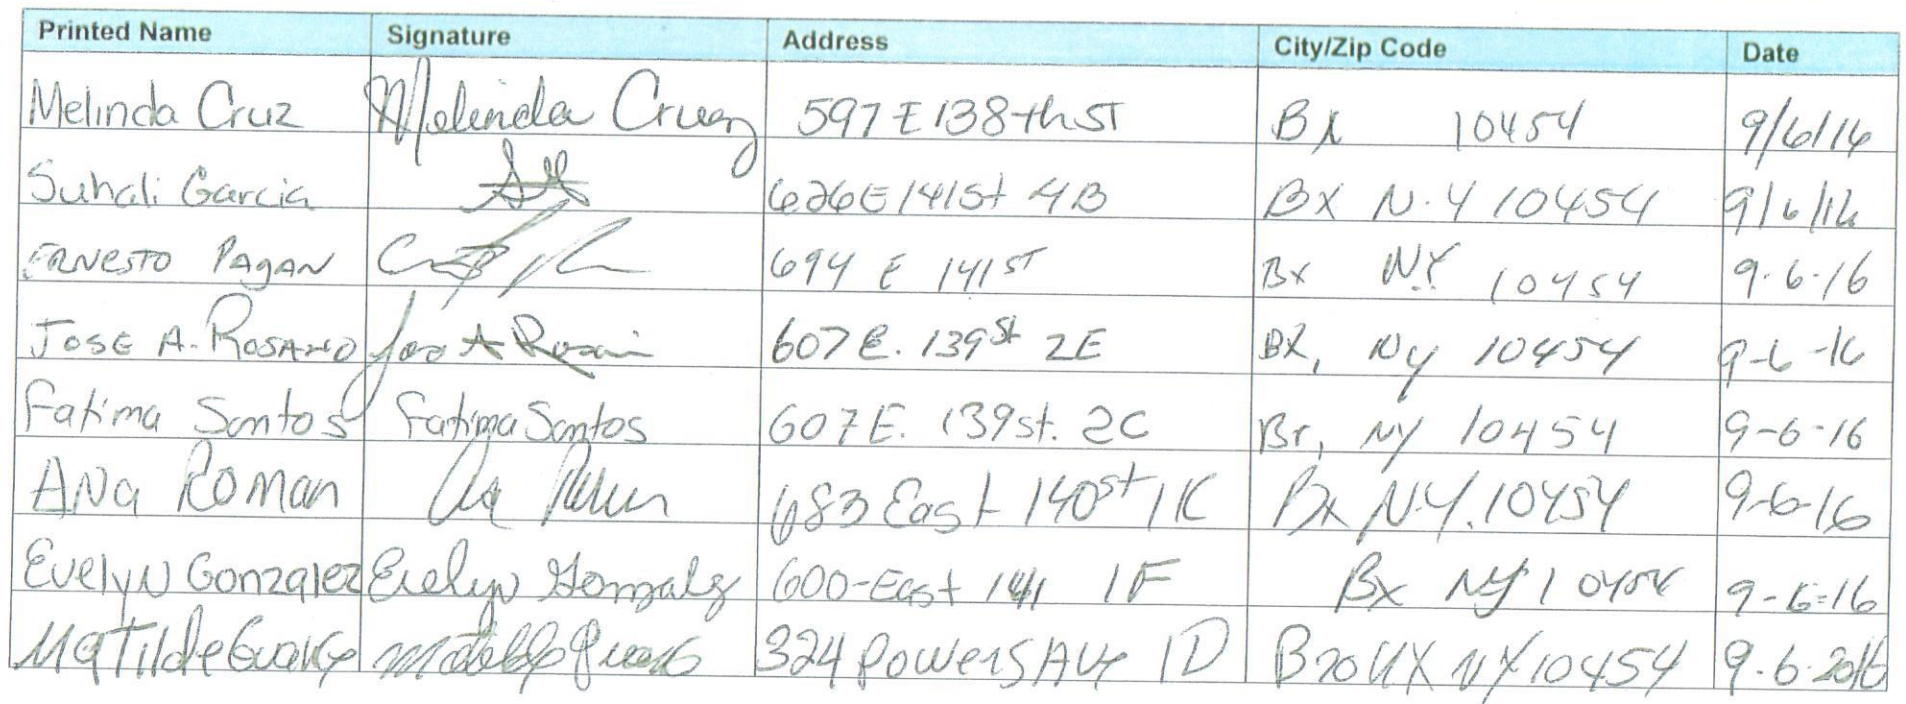 Printed Name Signature Address City/Zip Code Date
Melinda Cruz Melinda Cruz 597 E 138th ST Bx 10454 9/6/16
Suhali Garcia 626 E 141St 4B BX N.Y 10454 9/6/16
ERNESTO PAGAN 694 E 141 ST Bx NY 10454 9-6-16
JOSE A. ROSARIO Jose A 607 E. 139 st 2E BX, Ny 10454 9-6-16
Fatima Santos Fatima Santos 607 E. 139 st. 2C Br, NY 10454 9-6-16
ANa ROMan 683 East 140 st 1K Bx N.Y. 10454 9-6-16
EvelyN Gonzalez Evelyn Gonzalez 600-East 141 1F Bx NY 10454 9-6-16
MaTilde 324 Powers AVe 1D NY 10454 9.6.2016